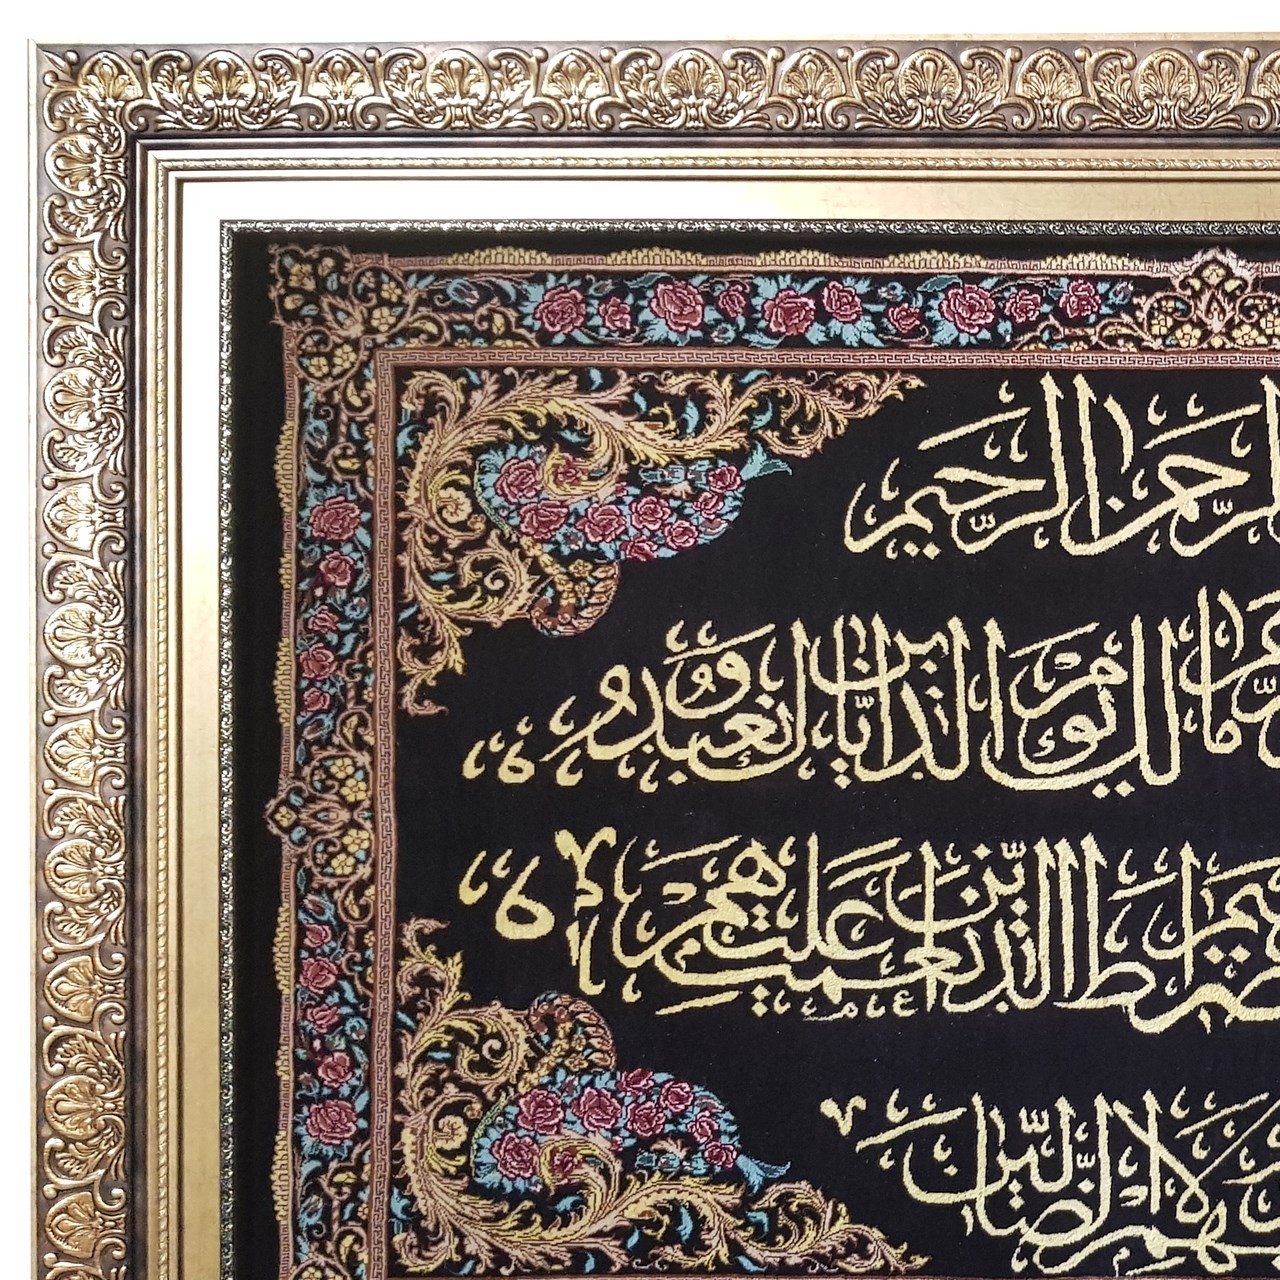 الرحمن الرحيم
مالك يوم الدين إياك نعبد و
صراط الذين أنعمت عليهم
ولا الضالين